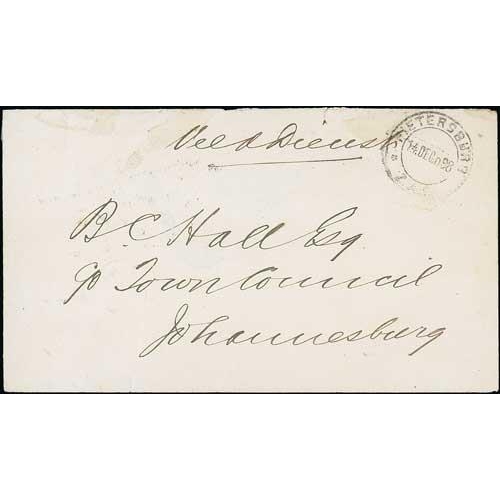 Veld Dienst
PIETERSBURG
14 DEC 98
Z.A.R.
B.C. Hall Esq
c/o Town Council
Johannesburg